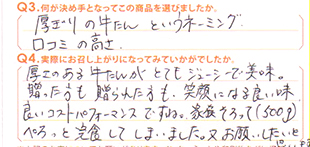 Q3.何が決め手となってこの商品を選びましたか。
厚ぎりの牛たん というネーミング
口コミの高さ.
Q4.実際にお召し上がりになってみていかがでしたか。
厚さのある牛たんがとてもジューシーで美味。
贈った方も贈られた方も、笑顔になる良い味.
良いコストパフォーマンスですね。家族そろって(500g)
ぺろっと完食してしまいました。又お願いしたいと